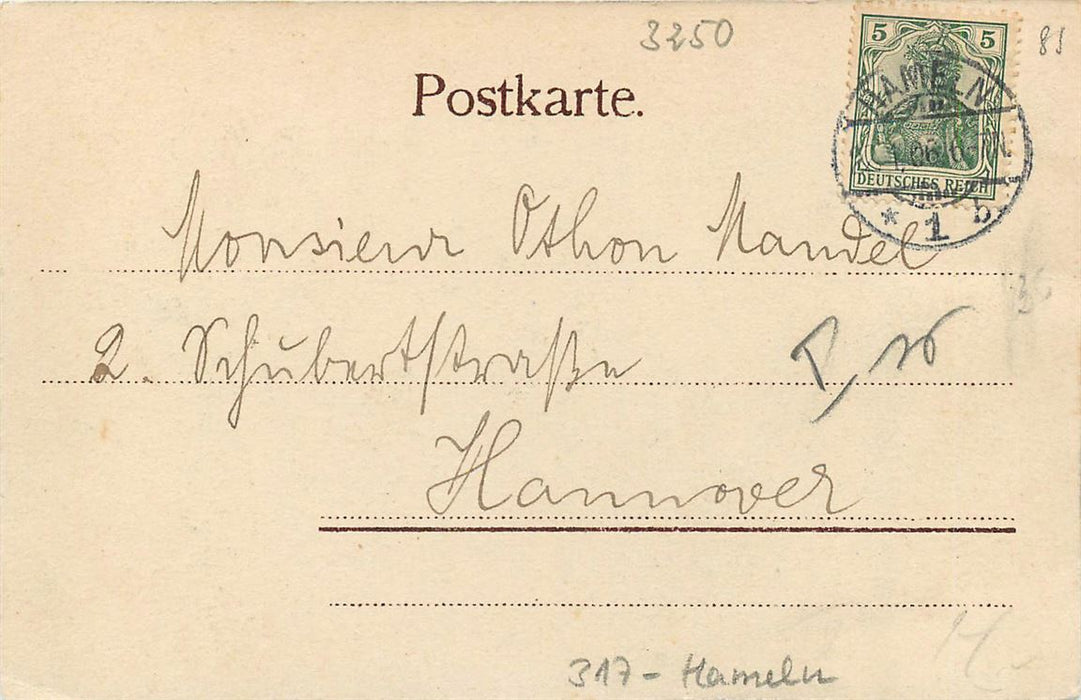 3250
5 5
81
Postkarte.
HAMELN
06.6-7N.
DEUTSCHES REICH
* 1 b
Monsieur Othon Mandel
2. Schubertstraße
Hannover
317 - Hameln